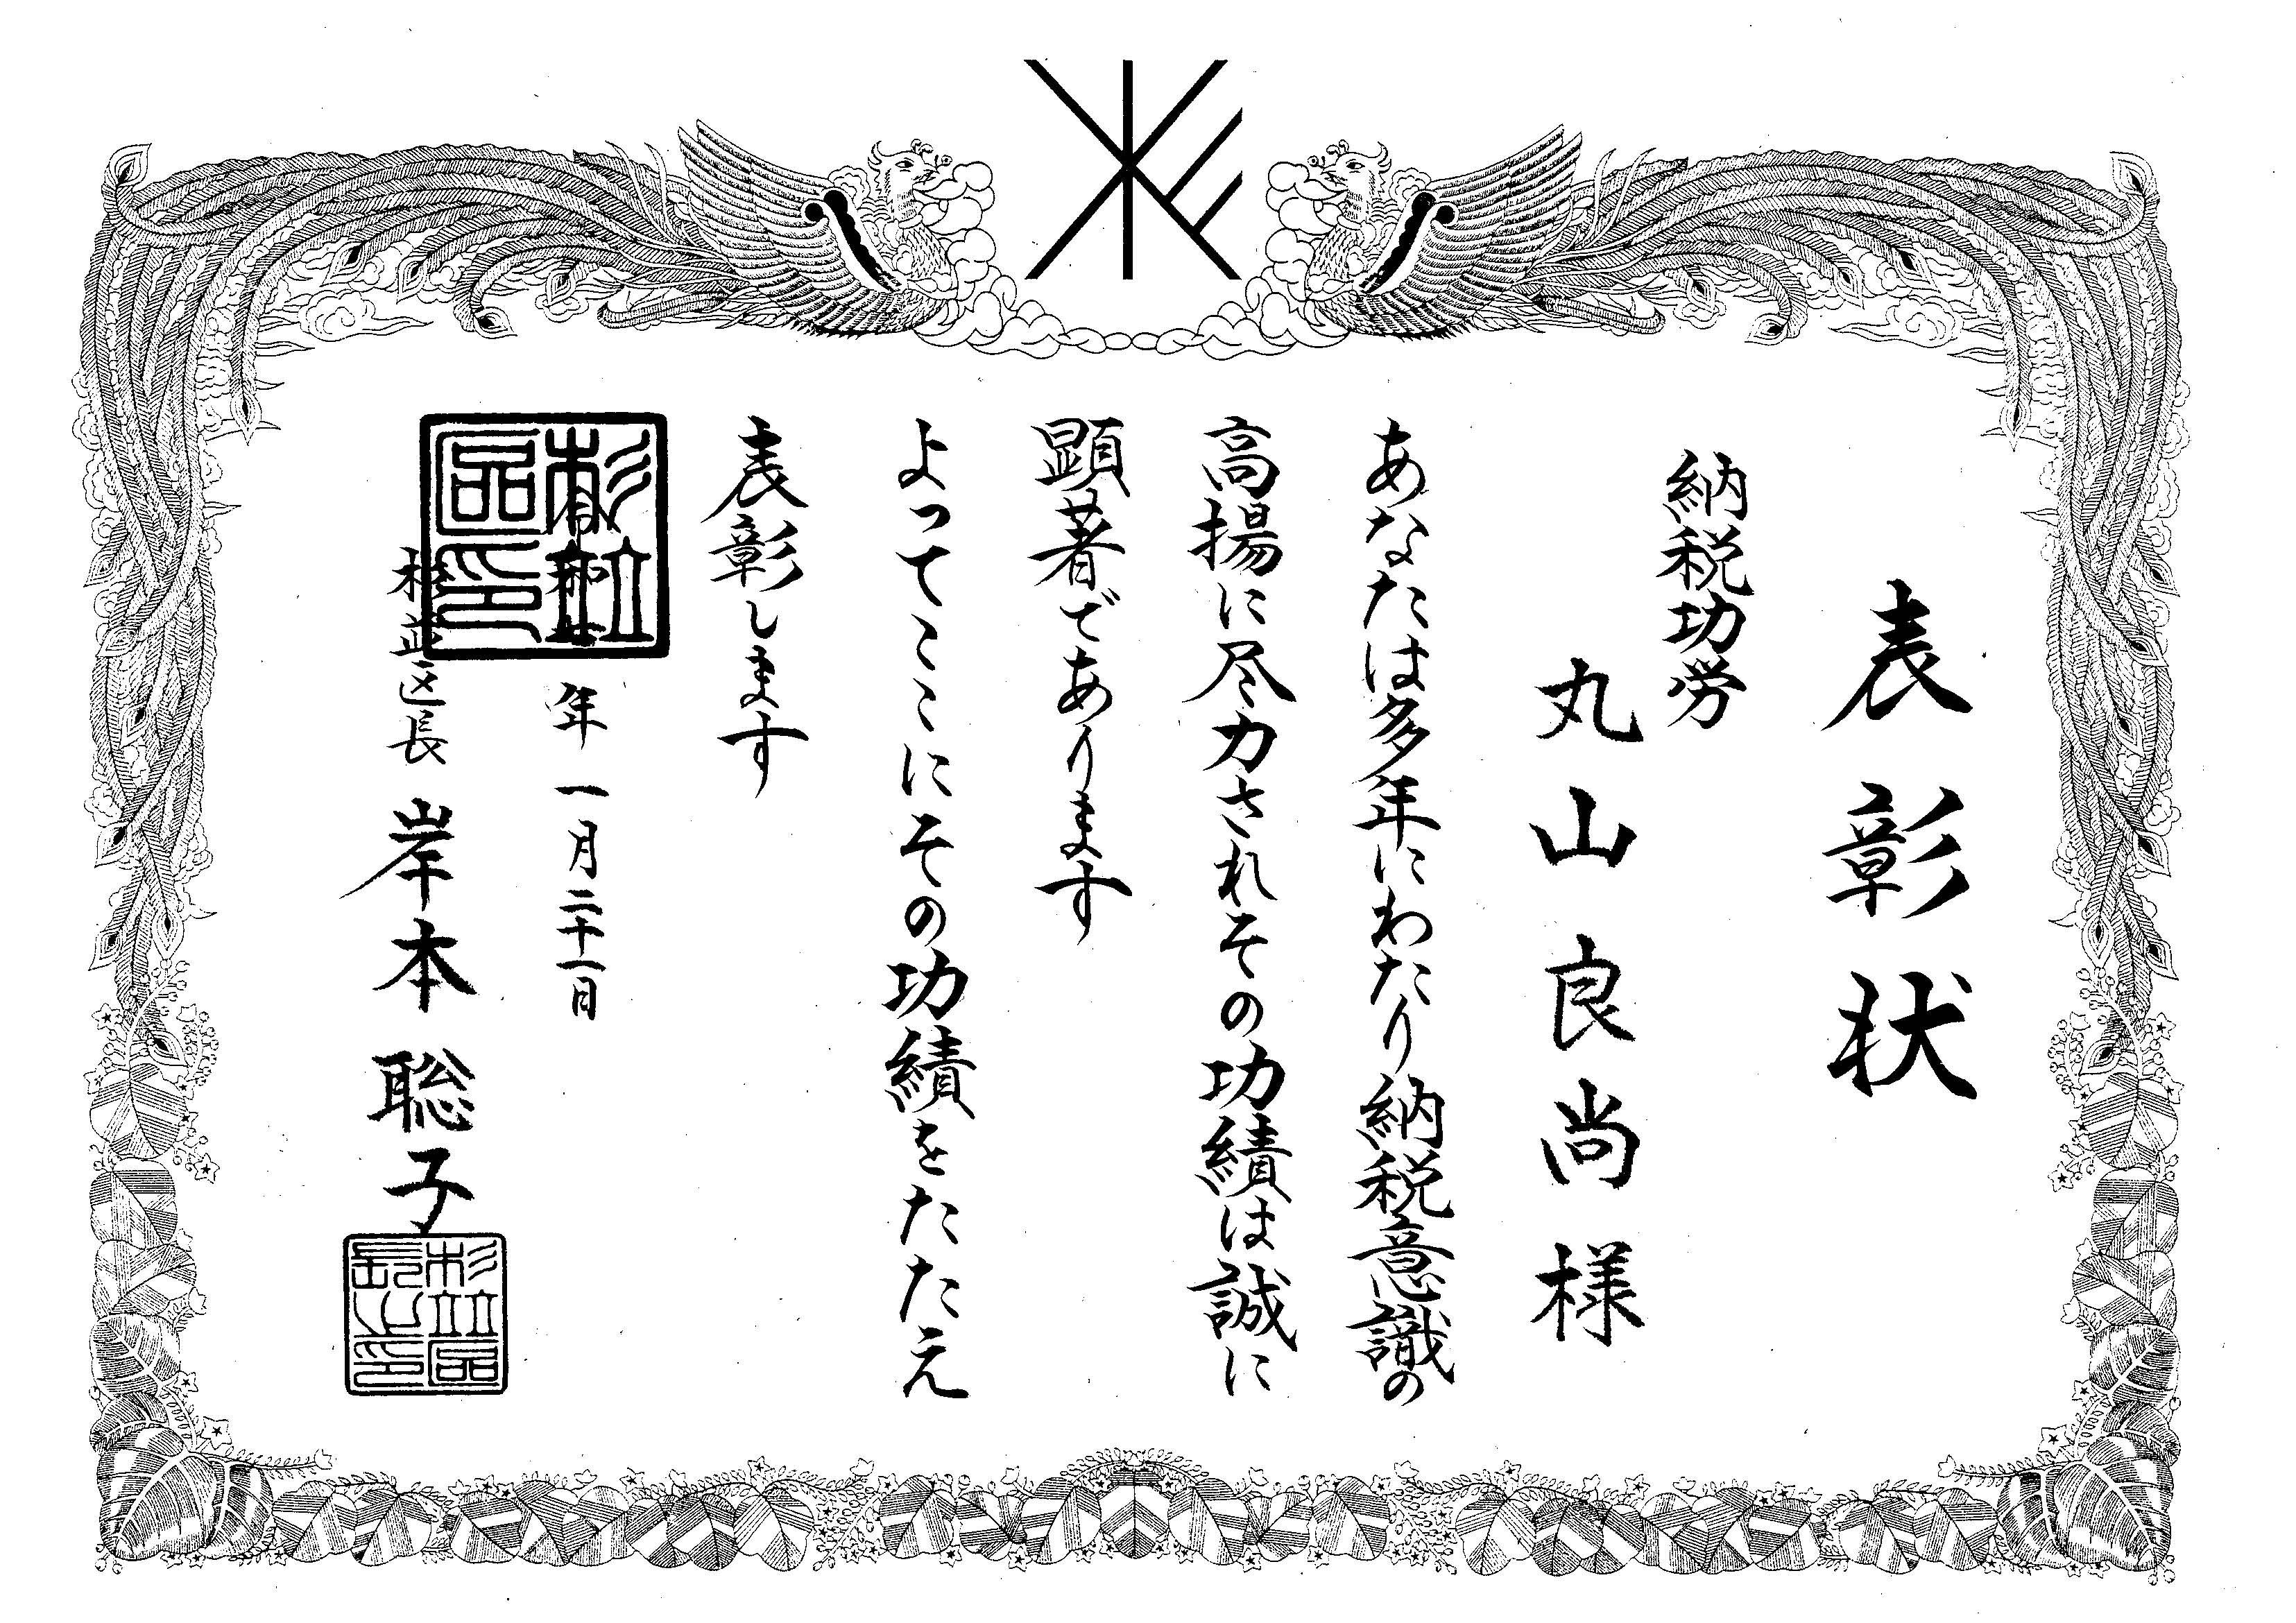 表彰状
納税功労
丸山良尚様
あなたは多年にわたり納税意識の
高揚に尽力されその功績は誠に
顕著であります
よってここにその功績をたたえ
表彰します
年一月二十一日
杉並区長 岸本聡子
杉並区印
杉並区長之印